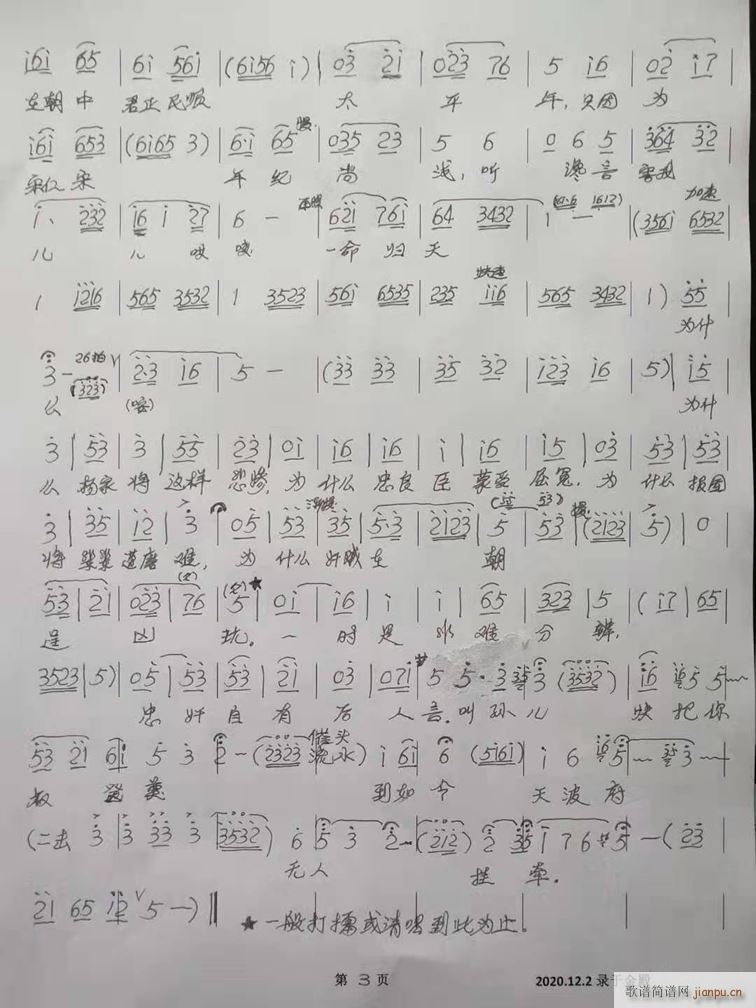 i6i 65 | 6i 56i | (6i56 i) | 03 2i | 023 76 | 5 i6 | 02 i7
在朝中 君正民顺 太 平 年,只因 为
i6i 653 | (6i65 3) | 6·i 65 | 035 23 | 5 6 | 0 6 5 | 364 32
宋仁宗 年纪 尚 浅,听 谗言
i、 232 | i6 i 27 | 6 — | 62i 76i | 64 3432 | i — | (356i 6532
加速
儿 儿 哎 一命 归 天
1 i2i6 | 565 3532 | 1 3523 | 56i 6535 | 235 ii6 | 565 3432 | 1) 55
快速
为什
3 — | 2·3 i6 | 5 — | (33 33 | 35 32 | i23 i6 | 5) | i5
26拍
(323)
么 为什
3 | 53 | 3 | 55 | 23 | 0i | i6 | i6 | i | i6 | i5 | 03 | 53 | 53
么 杨家 将 这样 悲惨,为 什么 忠良 臣 蒙受 屈冤,为 什么 报国
3 | 35 | i2 | 3 | 05 | 53 | 35 | 5·3 | 2i23 | 5 | 53 | (2i23 | 5) | 0
将 桀桀 遭磨 难, 为 什么 奸贼 在 朝
53 | 2i | 023 | 76 | 5 | 0i | i6 | i | i | 65 | 323 | 5 | (i7 | 65
逞 凶 玩。一 时 是 非 难 分 辨,
3523 | 5) | 05 | 53 | 53 | 2i | 03 | 07i | 5 5·3 3 (3532) | i6 5 5
忠 奸 自 有 后 人 言。叫 孙 儿 快 把 你
53 2i 6i 5 3 2 — (2323 流水) i 6i 6 (5i6i) i 6 5 3 —
叔 到如 今 天 波 府
(二击 3 | 3 33 3 | 3532) 6 5 3 2 — (2i2) 2 35 i 7 6 5 — (23
无人 挂 牵。
2i 65 i2 5 —)
★ 一般打擂或清唱到此为止。
第 3 页
2020.12.2 录于金殿
歌谱简谱网
jianpu.cn